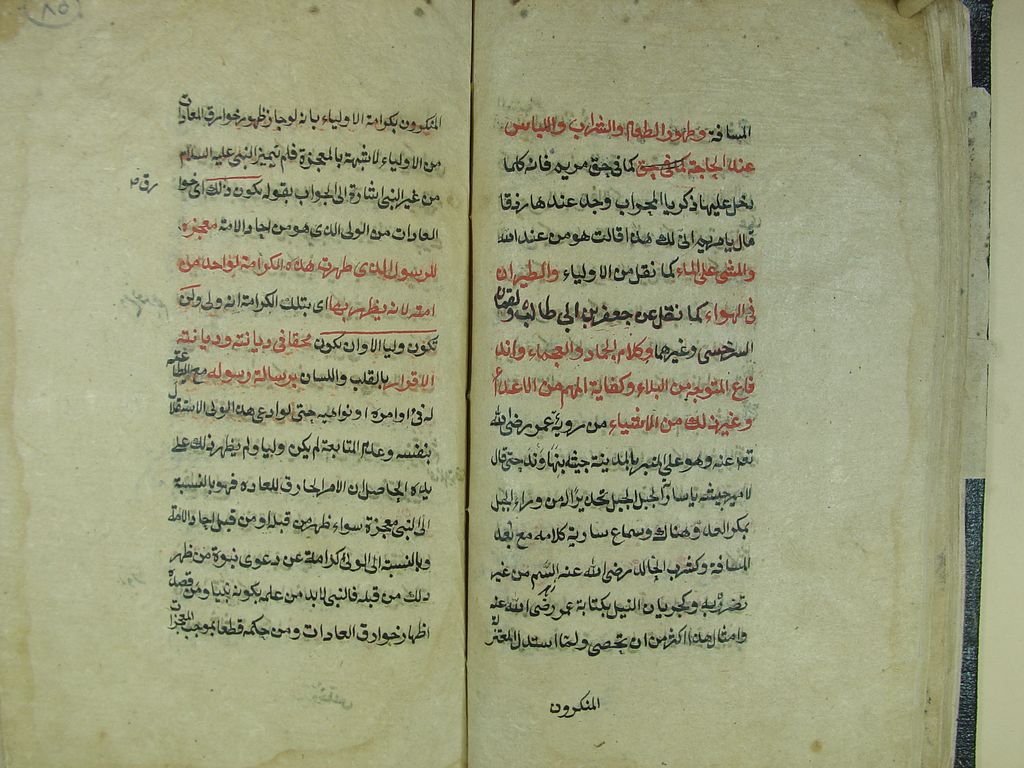 المسافة وظهور الطعام والشراب واللباس
عند الحاجة كما في حق مريم فانه كلما
دخل عليها ذكريا المحراب وجد عندها رزقا
قال يا مريم انى لك هذا قالت هو من عند الله
والمشي على الماء كما نقل من الاولياء والطيران
في الهواء كما نقل عن جعفر بن ابي طالب ولقمان
السرخسي وغيرهما وكلام الجماد والعجماء واند
فاع المتوجه من البلاء وكفاية المهم من الاعداء
وغير ذلك من الاشياء من روية عمر رضي الله
تعه عنه وهو على المنبر بالمدينة جيشه بنهاوند حتى قال
لامير جيشه يا سارية الجبل الجبل تحذيرا له من وراء الجبل
بمكر العدو هناك وسماع سارية كلامه مع بعد
المسافة وكشرب الخالد رضي الله عنه السم من غير
تضرر به وكجريان النيل بكتابة عمر رضي الله عنه
وامثال هذا اكثر من ان تحصى ولما استدل المعتزلة
المنكرون
٨٥
المنكرون بكرامة الاولياء بانه لو جاز ظهور خوارق العادات
من الاولياء لاشبهة بالمعجزة فلم يتميز النبي عليه السلام
من غير النبي اشارة الى الجواب بقوله يكون ذلك اى خوا
رق ص
العادات من الولى الذى هو من احاد الامة معجزة
للرسول الذى ظهرت هذه الكرامة لواحد من
امته لانه يظهر بها اى بتلك الكرامة انه ولى ولن
تكون وليا الا وان تكون محقا في ديانته وديانته
الاقرار بالقلب واللسان برسالة رسوله مع الطاعة
له في اوامره ونواهيه حتى لو ادعى هذا الولى الاستقلال
بنفسه وعدم المتابعة لم يكن وليا ولم يظهر ذلك على
يده الحاصل ان الامر الخارق للعادة فهو بالنسبة
الى النبي معجزة سواء ظهر من قبله او من قبل احاد الامة
وبالنسبة الى الولى كرامة عن دعوى نبوة من ظهر
ذلك من قبله فالنبي لابد من علمه بكونه نبيا ومن قصده
اظهار خوارق العادات ومن حكمه قطعا بموجب المعجزات